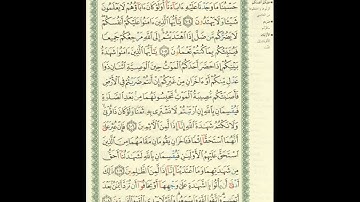 حَسْبُنَا مَا وَجَدْنَا عَلَيْهِ ءَابَآءَنَآ أَوَلَوْ كَانَ ءَابَآؤُهُمْ لَا يَعْلَمُونَ
شَيْـًٔا وَلَا يَهْتَدُونَ ١٠٤ يَـٰٓأَيُّهَا ٱلَّذِينَ ءَامَنُوا۟ عَلَيْكُمْ أَنفُسَكُمْ
لَا يَضُرُّكُم مَّن ضَلَّ إِذَا ٱهْتَدَيْتُمْ إِلَى ٱللَّهِ مَرْجِعُكُمْ جَمِيعًا
فَيُنَبِّئُكُم بِمَا كُنتُمْ تَعْمَلُونَ ١٠٥ يَـٰٓأَيُّهَا ٱلَّذِينَ ءَامَنُوا۟ شَهَـٰدَةُ
بَيْنِكُمْ إِذَا حَضَرَ أَحَدَكُمُ ٱلْمَوْتُ حِينَ ٱلْوَصِيَّةِ ٱثْنَانِ ذَوَا
عَدْلٍ مِّنكُمْ أَوْ ءَاخَرَانِ مِنْ غَيْرِكُمْ إِنْ أَنتُمْ ضَرَبْتُمْ فِى ٱلْأَرْضِ
فَأَصَـٰبَتْكُم مُّصِيبَةُ ٱلْمَوْتِ تَحْبِسُونَهُمَا مِنۢ بَعْدِ ٱلصَّلَوٰةِ
فَيُقْسِمَانِ بِٱللَّهِ إِنِ ٱرْتَبْتُمْ لَا نَشْتَرِى بِهِۦ ثَمَنًا وَلَوْ كَانَ ذَا قُرْبَىٰ
وَلَا نَكْتُمُ شَهَـٰدَةَ ٱللَّهِ إِنَّآ إِذًا لَّمِنَ ٱلْـَٔاثِمِينَ ١٠٦ فَإِنْ عُثِرَ عَلَىٰٓ
أَنَّهُمَا ٱسْتَحَقَّآ إِثْمًا فَـَٔاخَرَانِ يَقُومَانِ مَقَامَهُمَا مِنَ ٱلَّذِينَ
ٱسْتَحَقَّ عَلَيْهِمُ ٱلْأَوْلَيَـٰنِ فَيُقْسِمَانِ بِٱللَّهِ لَشَهَـٰدَتُنَآ أَحَقُّ
مِن شَهَـٰدَتِهِمَا وَمَا ٱعْتَدَيْنَآ إِنَّآ إِذًا لَّمِنَ ٱلظَّـٰلِمِينَ ١٠٧ ذَٰلِكَ
أَدْنَىٰٓ أَن يَأْتُوا۟ بِٱلشَّهَـٰدَةِ عَلَىٰ وَجْهِهَآ أَوْ يَخَافُوٓا۟ أَن تُرَدَّ أَيْمَـٰنٌۢ بَعْدَ
أَيْمَـٰنِهِمْ وَٱتَّقُوا۟ ٱللَّهَ وَٱسْمَعُوا۟ وَٱللَّهُ لَا يَهْدِى ٱلْقَوْمَ